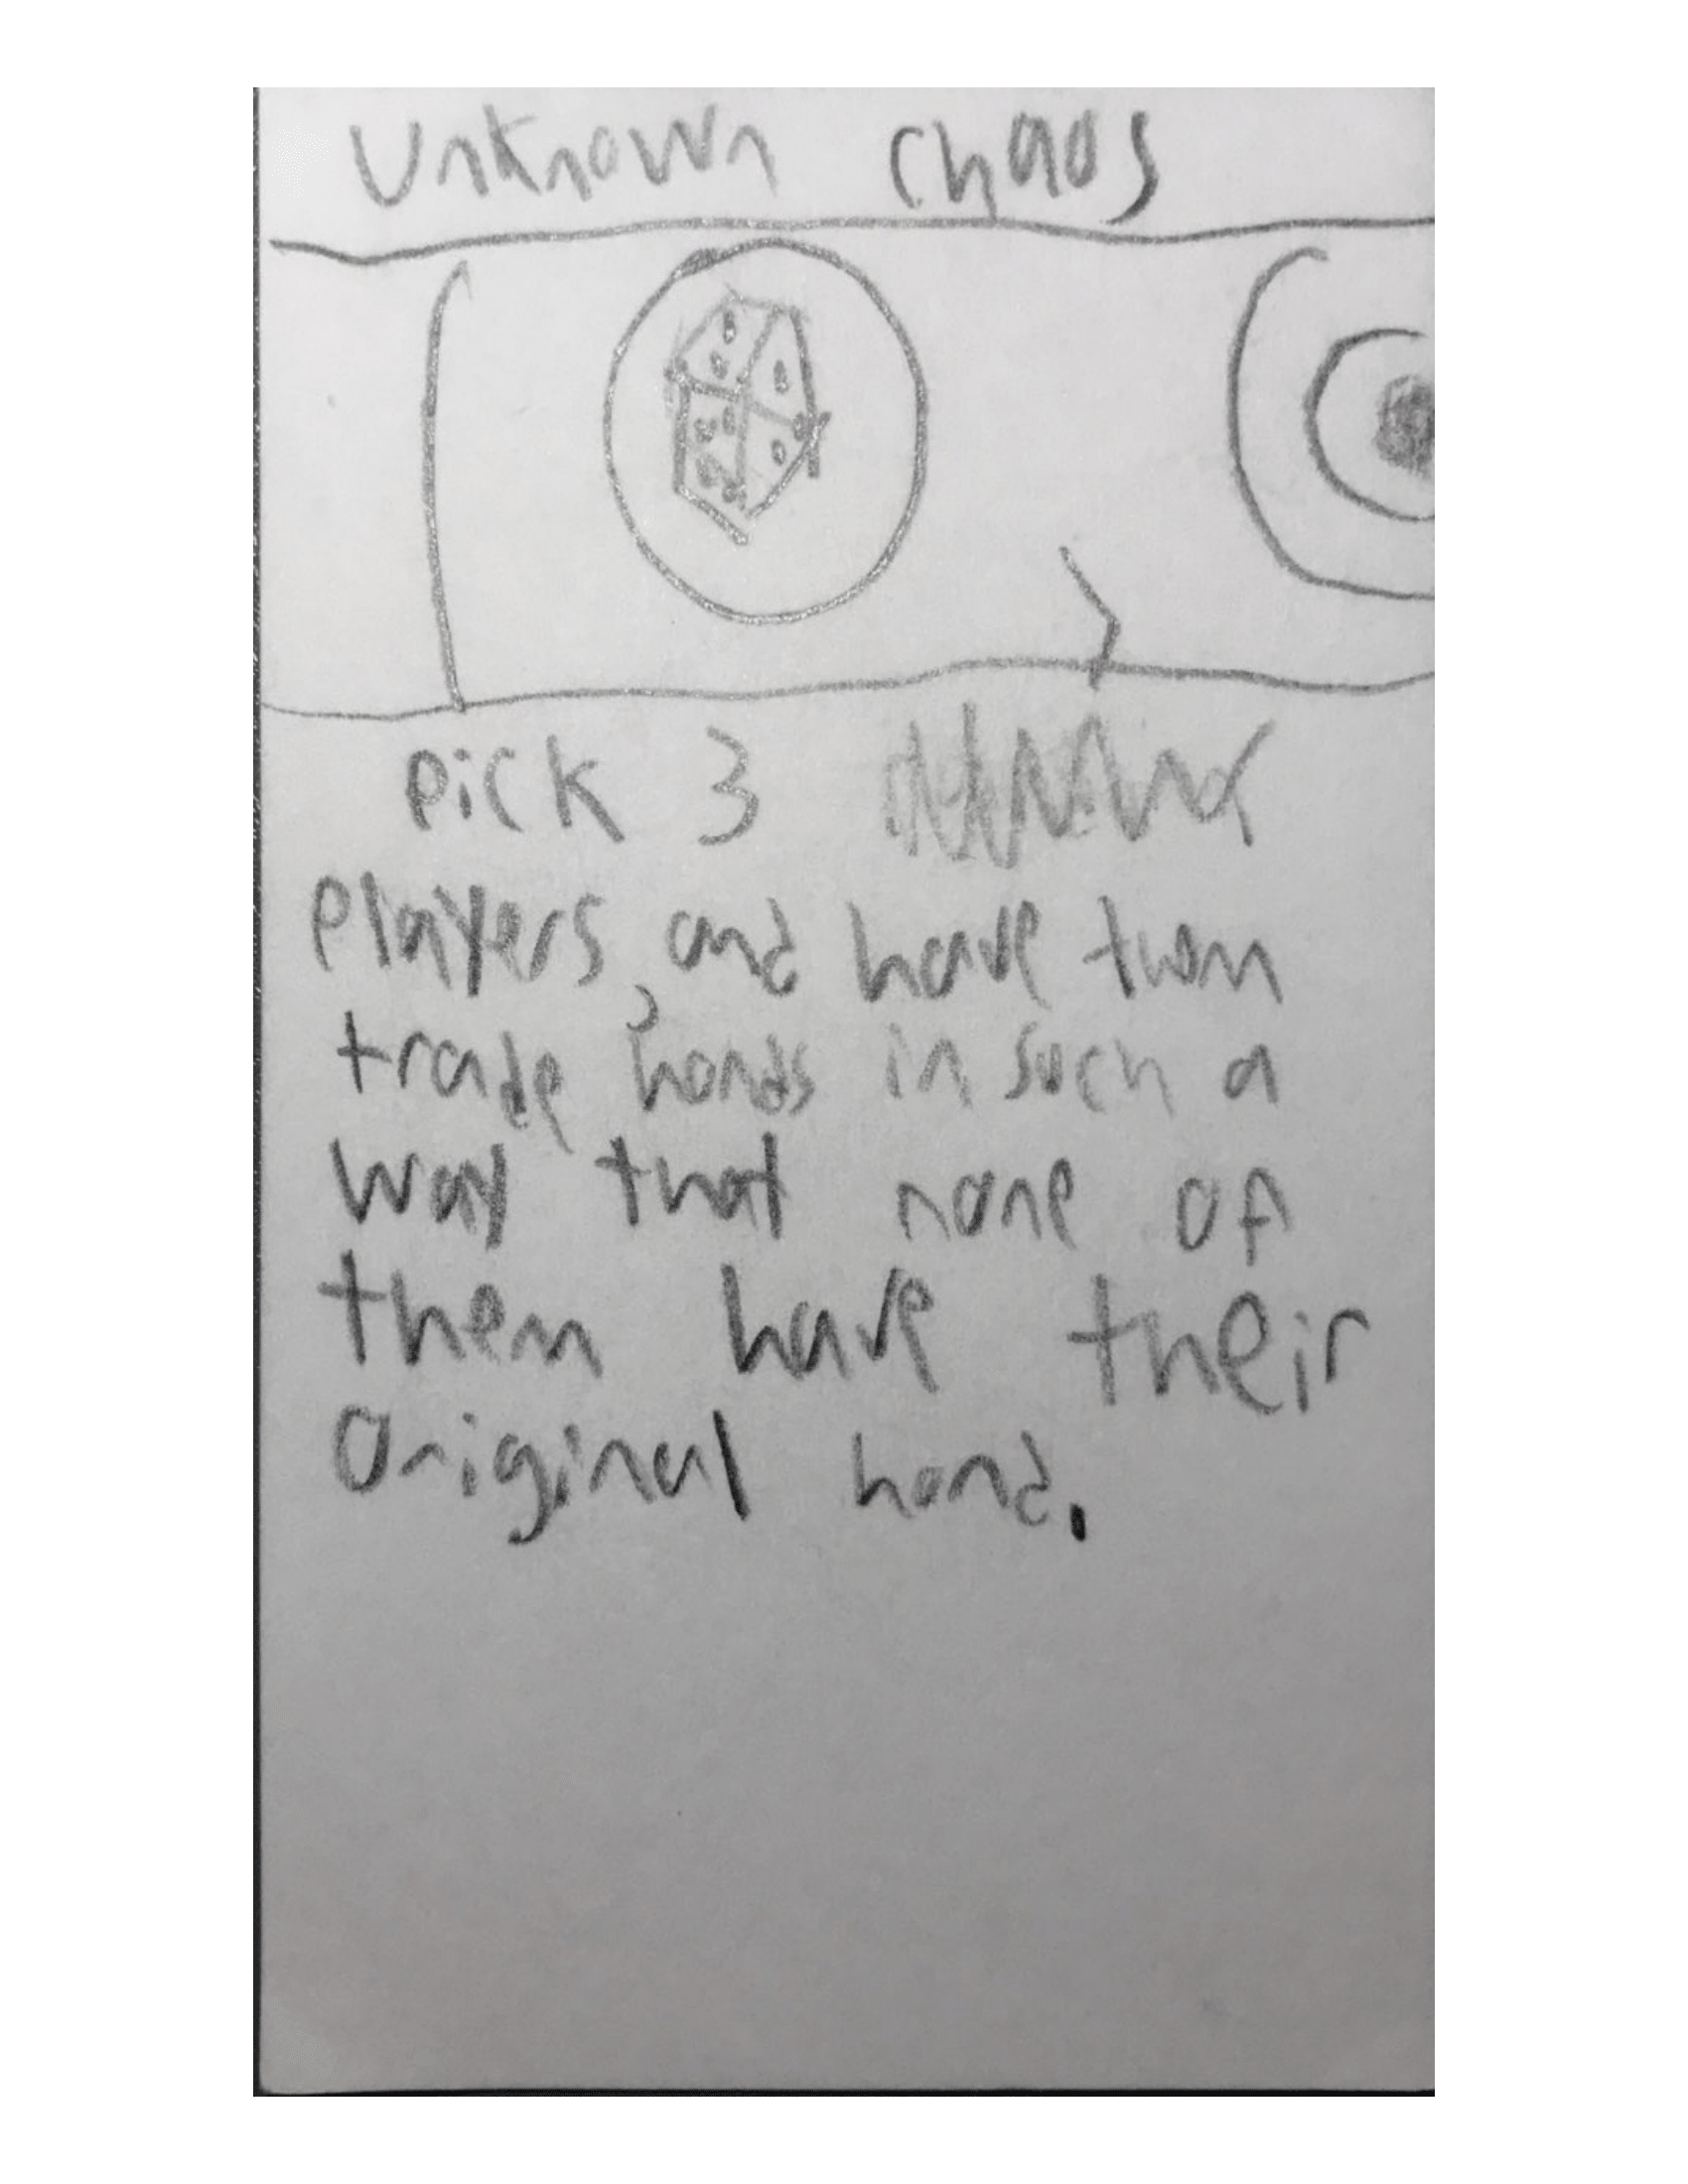 Unknown chaos
pick 3
players, and have them
trade hands in such a
way that none of
them have their
Original hand.